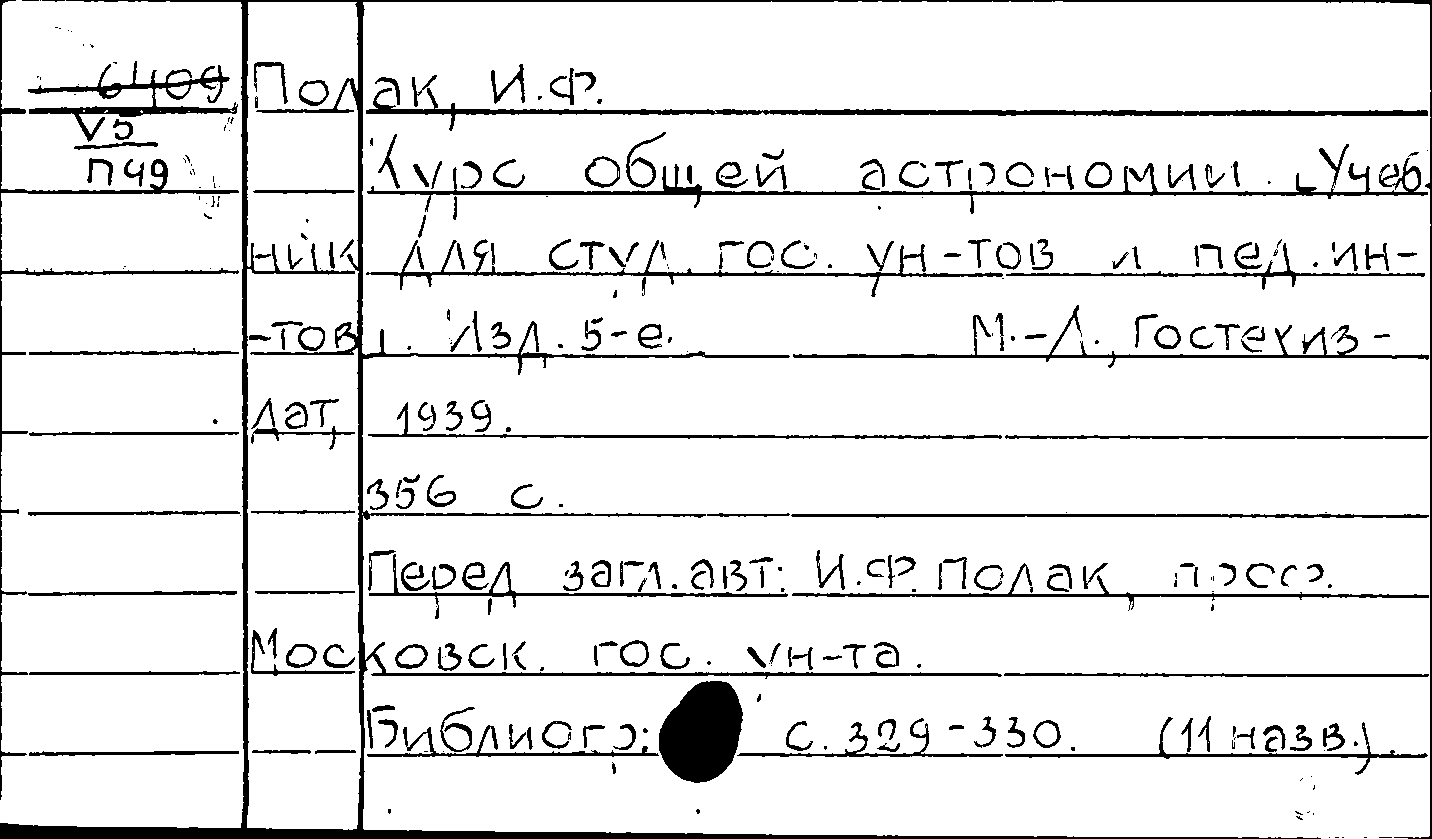 6409 Полак, И.Ф.
V5
П49
Курс общей астрономии. [Учеб.
ник для студ. гос. ун-тов и пед. ин-
-тов]. Изд. 5-е. М.-Л., Гостехиз-
дат, 1939.
356 с.
Перед загл. авт: И.Ф. Полак, проф.
Московск. гос. ун-та.
Библиогр: с. 329-330. (11 назв.).